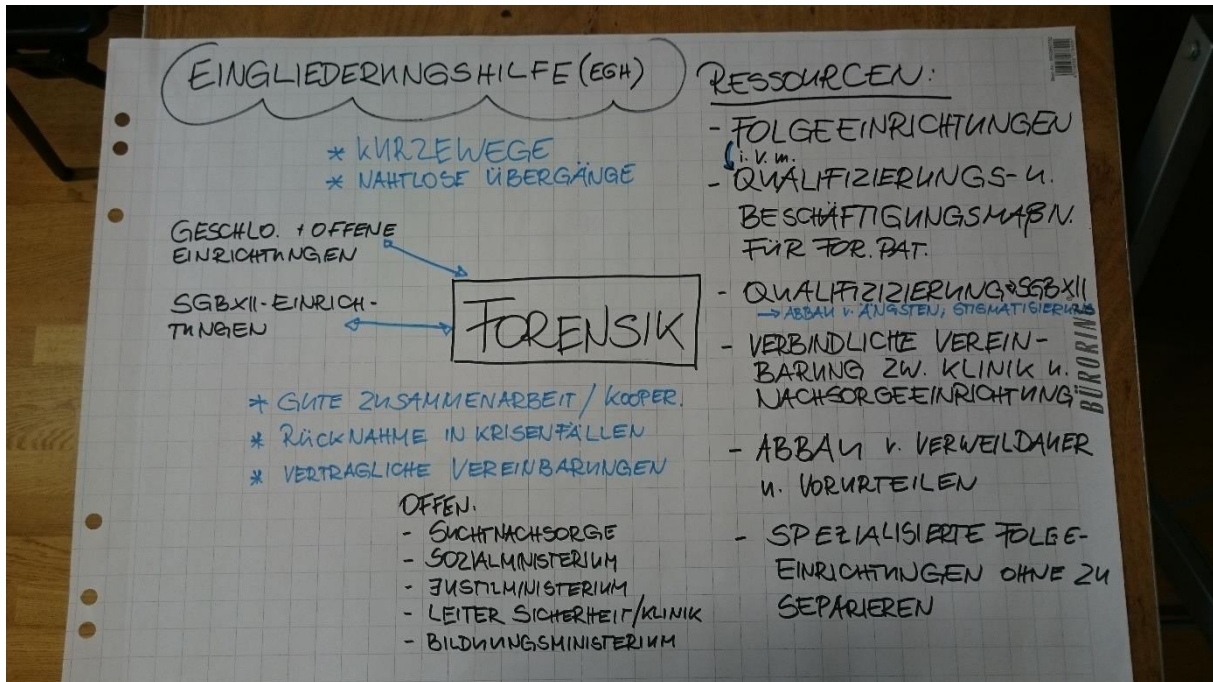 EINGLIEDERUNGSHILFE (EGH)
* KURZE WEGE
* NAHTLOSE ÜBERGÄNGE
GESCHLO. + OFFENE
EINRICHTUNGEN
SGBXII-EINRICH-
TUNGEN
FORENSIK
* GUTE ZUSAMMENARBEIT / KOOPER.
* RÜCKNAHME IN KRISENFÄLLEN
* VERTRAGLICHE VEREINBARUNGEN
OFFEN:
- SUCHTNACHSORGE
- SOZIALMINISTERIUM
- JUSTIZMINISTERIUM
- LEITER SICHERHEIT/KLINIK
- BILDUNGSMINISTERIUM
RESSOURCEN:
- FOLGEEINRICHTUNGEN
i. V. m.
- QUALIFIZIERUNGS- U.
BESCHÄFTIGUNGSMAßN.
FÜR FOR. PAT.
- QUALIFIZIZIERUNG → SGBXII
→ ABBAU V. ÄNGSTEN, STIGMATISIERUNG
- VERBINDLICHE VEREIN-
BARUNG ZW. KLINIK U.
NACHSORGEEINRICHTUNG
- ABBAU V. VERWEILDAUER
U. VORURTEILEN
- SPEZIALISIERTE FOLGE-
EINRICHTUNGEN OHNE ZU
SEPARIEREN
BÜRORING